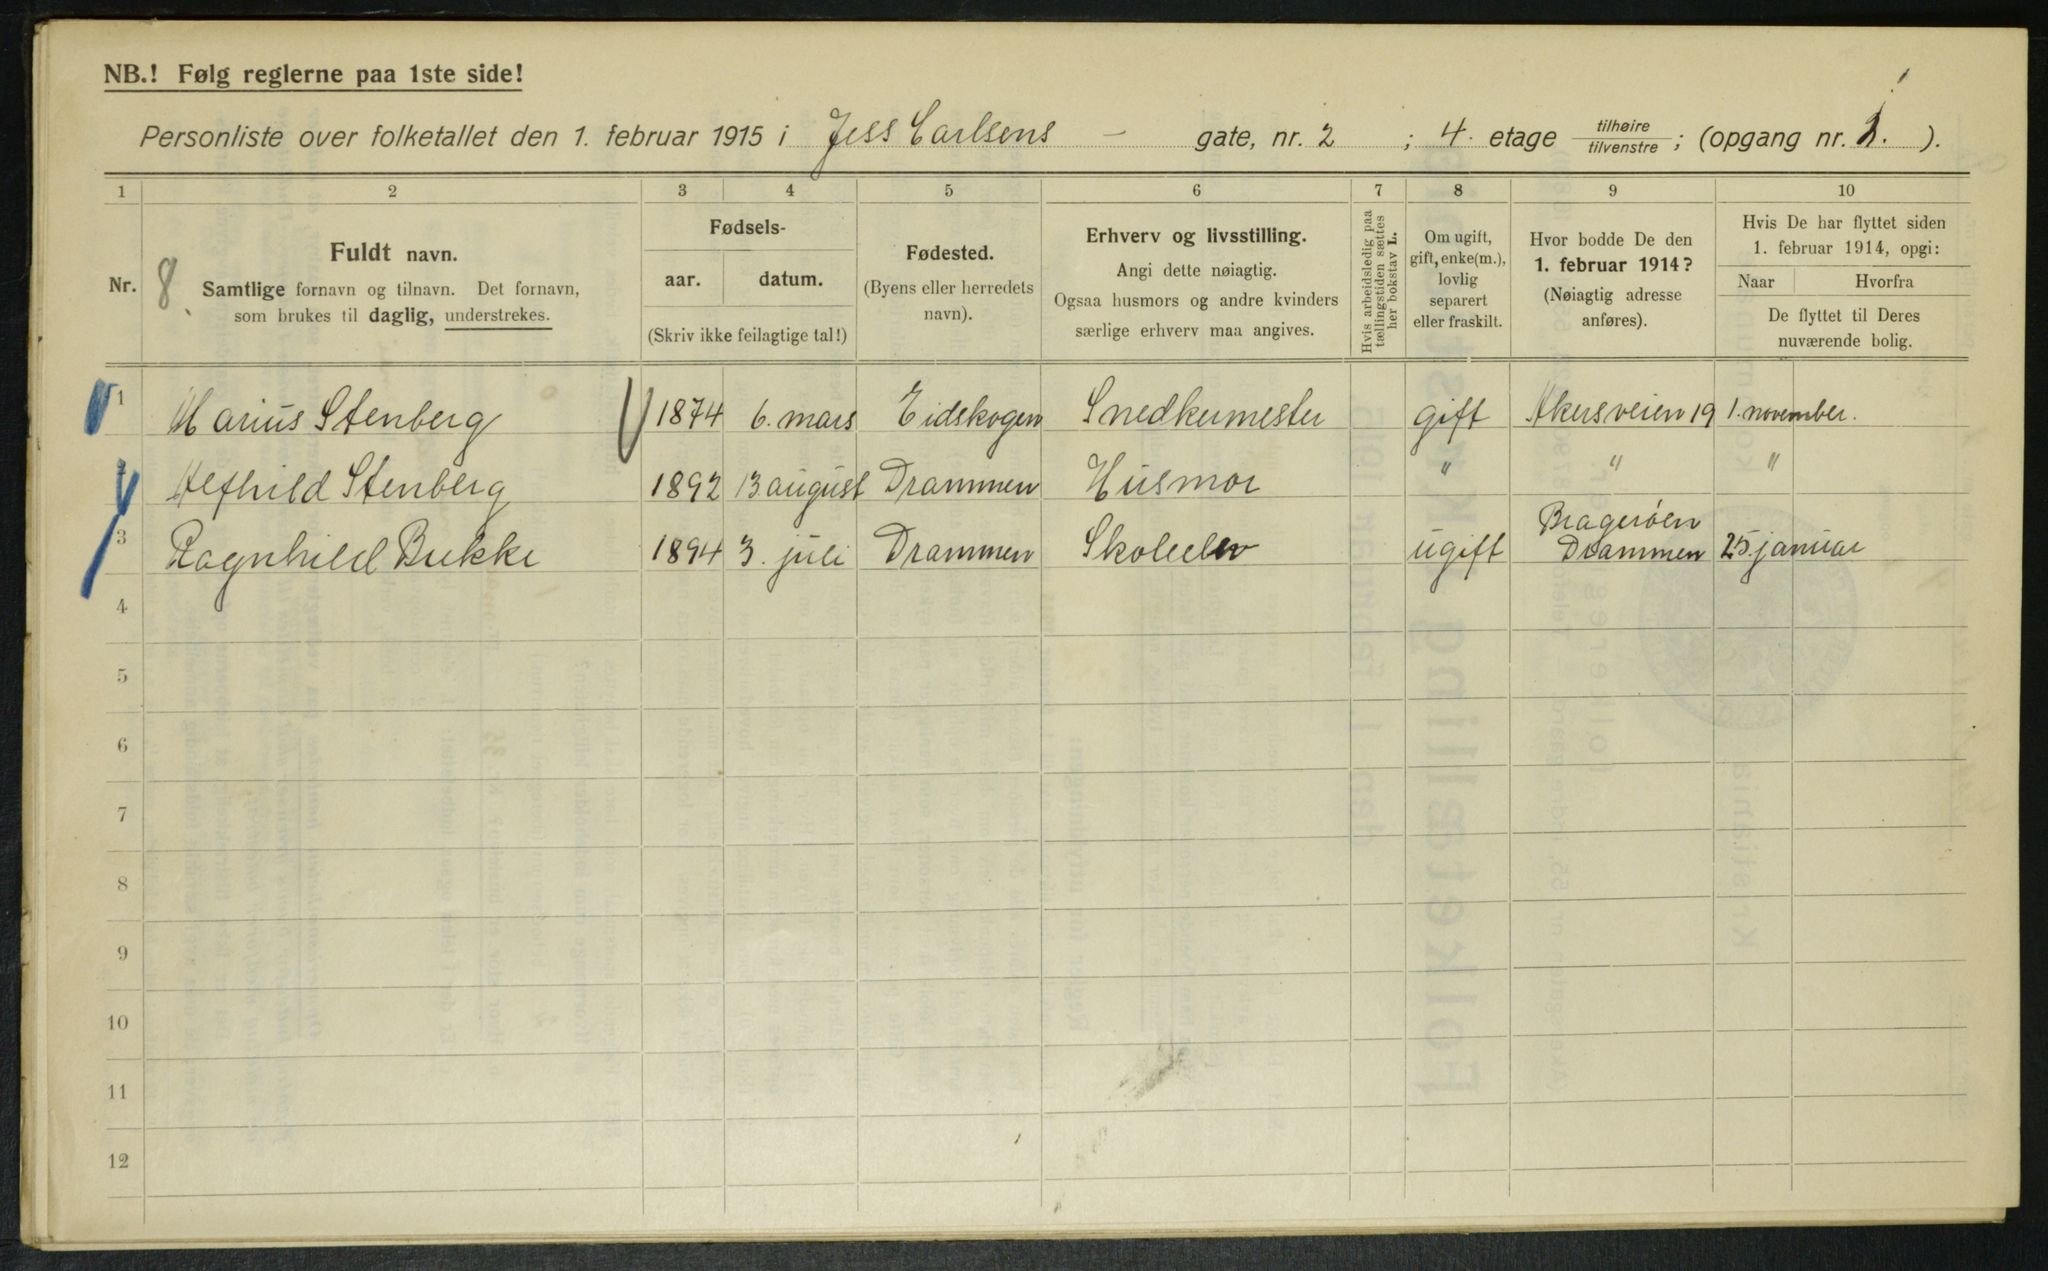 NB.! Følg reglerne paa 1ste side!
Personliste over folketallet den 1. februar 1915 i Jess Carlsens – gate, nr. 2 ; 4. etage tilhøire / tilvenstre ; (opgang nr. 1. ).
1 2 3 4 5 6 7 8 9 10
Nr.
8.
Fuldt navn.
Samtlige fornavn og tilnavn. Det fornavn,
som brukes til daglig, understrekes.
Fødsels-
aar. datum.
(Skriv ikke feilagtige tal!)
Fødested.
(Byens eller herredets
navn).
Erhverv og livsstilling.
Angi dette nøiagtig.
Ogsaa husmors og andre kvinders
særlige erhverv maa angives.
Hvis arbeidsledig paa
tællingstiden sættes
her bokstav L.
Om ugift,
gift, enke(m.),
lovlig
separert
eller fraskilt.
Hvor bodde De den
1. februar 1914?
(Nøiagtig adresse
anføres).
Hvis De har flyttet siden
1. februar 1914, opgi:
Naar Hvorfra
De flyttet til Deres
nuværende bolig.
1 Marius Stenberg 1874 6. mars Eidskogen Snedkermester gift Akersveien 19 1. november.
2 Alfhild Stenberg 1892 13 august Drammen Husmor " " "
3 Ragnhild Bukke 1894 3. juli Drammen Skoleelev ugift Bragerøen Drammen 25. januar
4
5
6
7
8
9
10
11
12